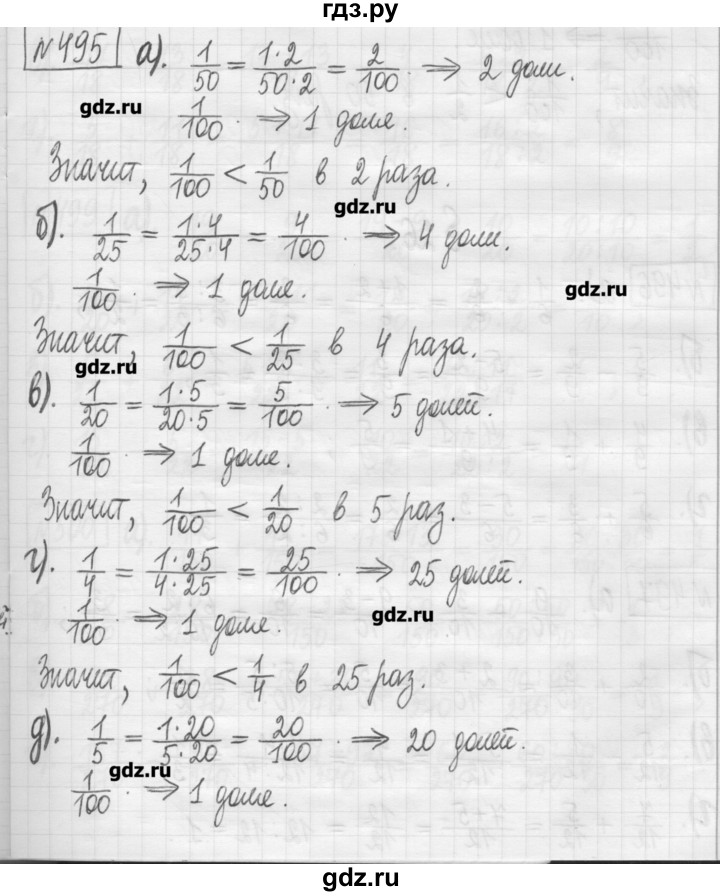 гдз.ру
№495 а). 1/50 = 1·2/50·2 = 2/100 ⇒ 2 доли.
gdz.ru
1/100 ⇒ 1 доля.
Значит, 1/100 < 1/50 в 2 раза.
gdz.ru
б). 1/25 = 1·4/25·4 = 4/100 ⇒ 4 доли.
1/100 ⇒ 1 доля.
gdz.ru
Значит, 1/100 < 1/25 в 4 раза.
gdz.ru
в). 1/20 = 1·5/20·5 = 5/100 ⇒ 5 долей.
1/100 ⇒ 1 доля.
Значит, 1/100 < 1/20 в 5 раз.
г). 1/4 = 1·25/4·25 = 25/100 ⇒ 25 долей.
1/100 ⇒ 1 доля.
gdz.ru
Значит, 1/100 < 1/4 в 25 раз.
д). 1/5 = 1·20/5·20 = 20/100 ⇒ 20 долей.
gdz.ru
1/100 ⇒ 1 доля.
гдз.ру